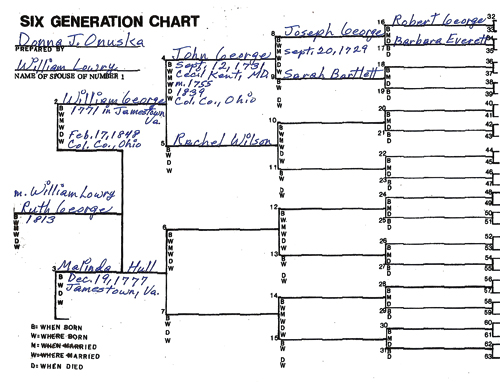 SIX GENERATION CHART
Donna J. Onuska
PREPARED BY
William Lowry
NAME OF SPOUSE OF NUMBER 1
m. William Lowry
Ruth George
1813
B
W
M
D
W
2
William George
1771 in Jamestown
Va.
Feb. 17, 1848
Col. Co., Ohio
B
W
M
D
W
3
Malinda Hull
Dec. 19, 1777
Jamestown, Va.
B
W
D
W
4
John George
Sept. 12, 1731
Cecil Kent, MD.
m. 1755
1839
Col. Co., Ohio
B
W
M
D
W
5
Rachel Wilson
B
W
D
W
6
B
W
M
D
W
7
B
W
D
W
8
Joseph George
Sept. 20, 1729
B
W
M
D
W
9
Sarah Bartlett
B
W
D
W
10
B
W
M
D
W
11
B
W
D
W
12
B
W
M
D
W
13
B
W
D
W
14
B
W
M
D
W
15
B
W
D
W
16
Robert George
B
M
D
17
Barbara Everett
B
D
18
19
20
21
22
23
24
25
26
27
28
29
30
31
32
33
34
35
36
37
38
39
40
41
42
43
44
45
46
47
48
49
50
51
52
53
54
55
56
57
58
59
60
61
62
63
B= WHEN BORN
W= WHERE BORN
M= WHEN MARRIED
W= WHERE MARRIED
D= WHEN DIED